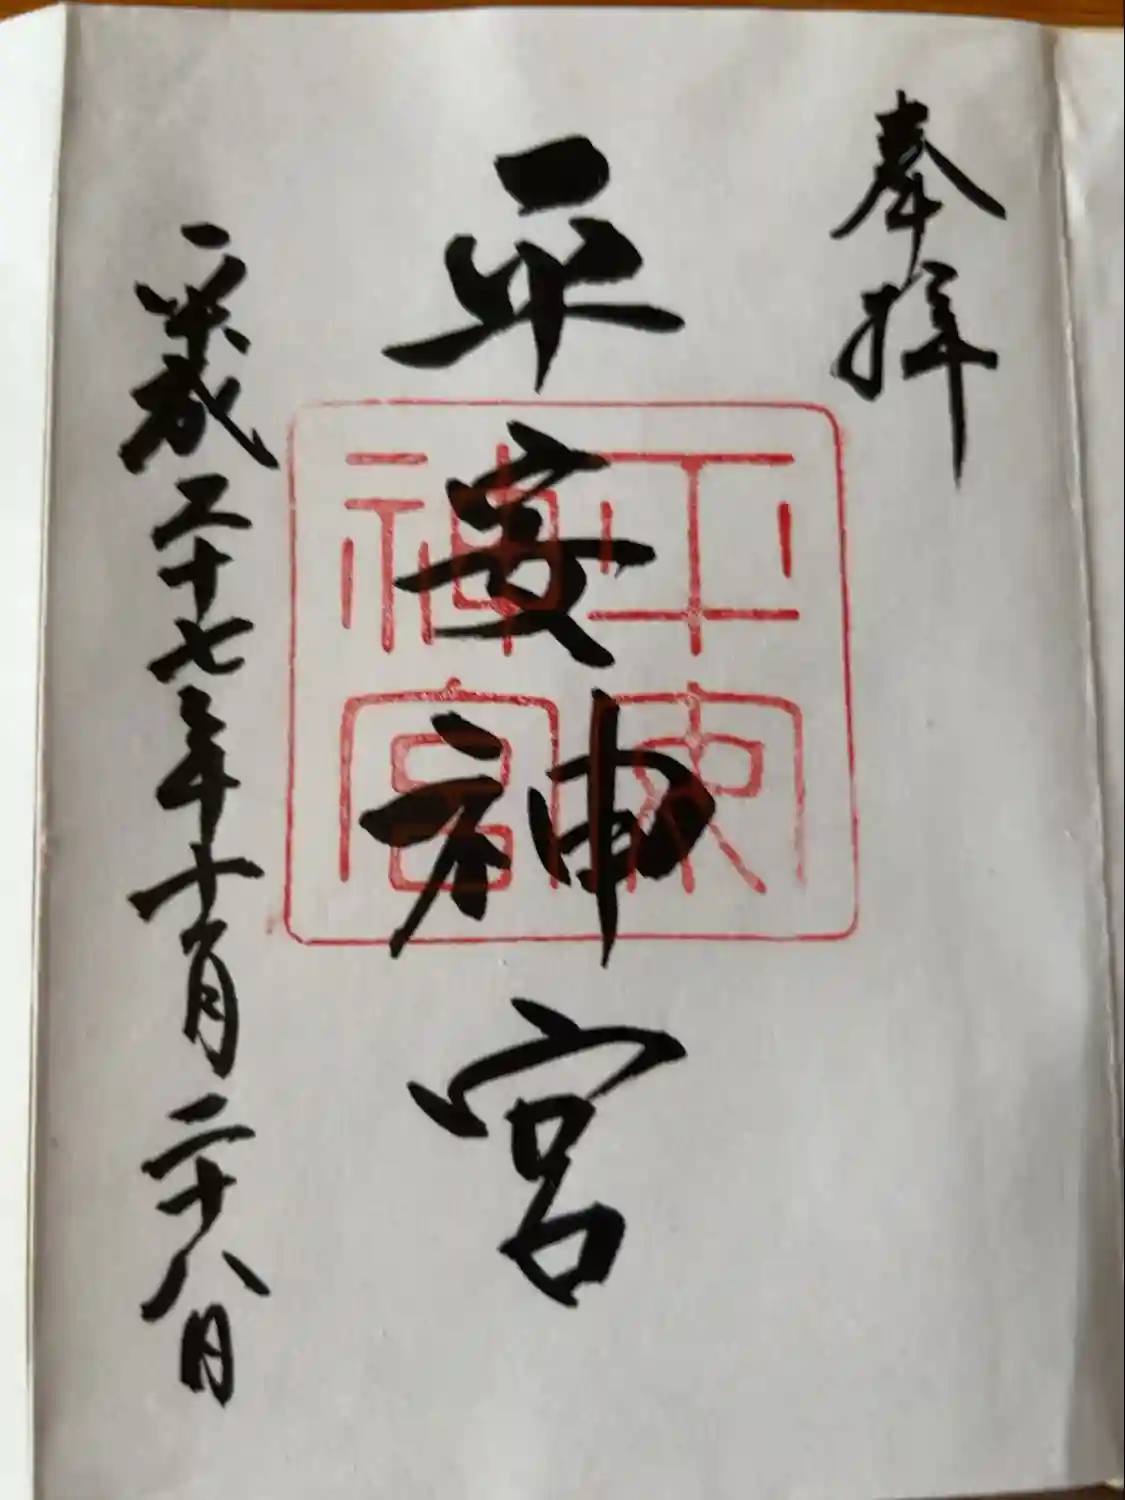 奉拝
平安神宮
平安
神宮
平成二十七年十月二十八日